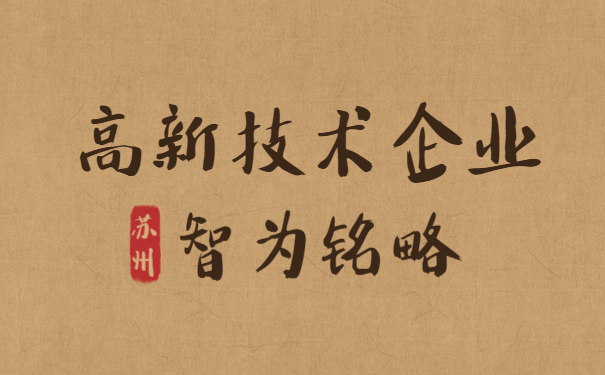 高新技术企业
苏州
智为铭略